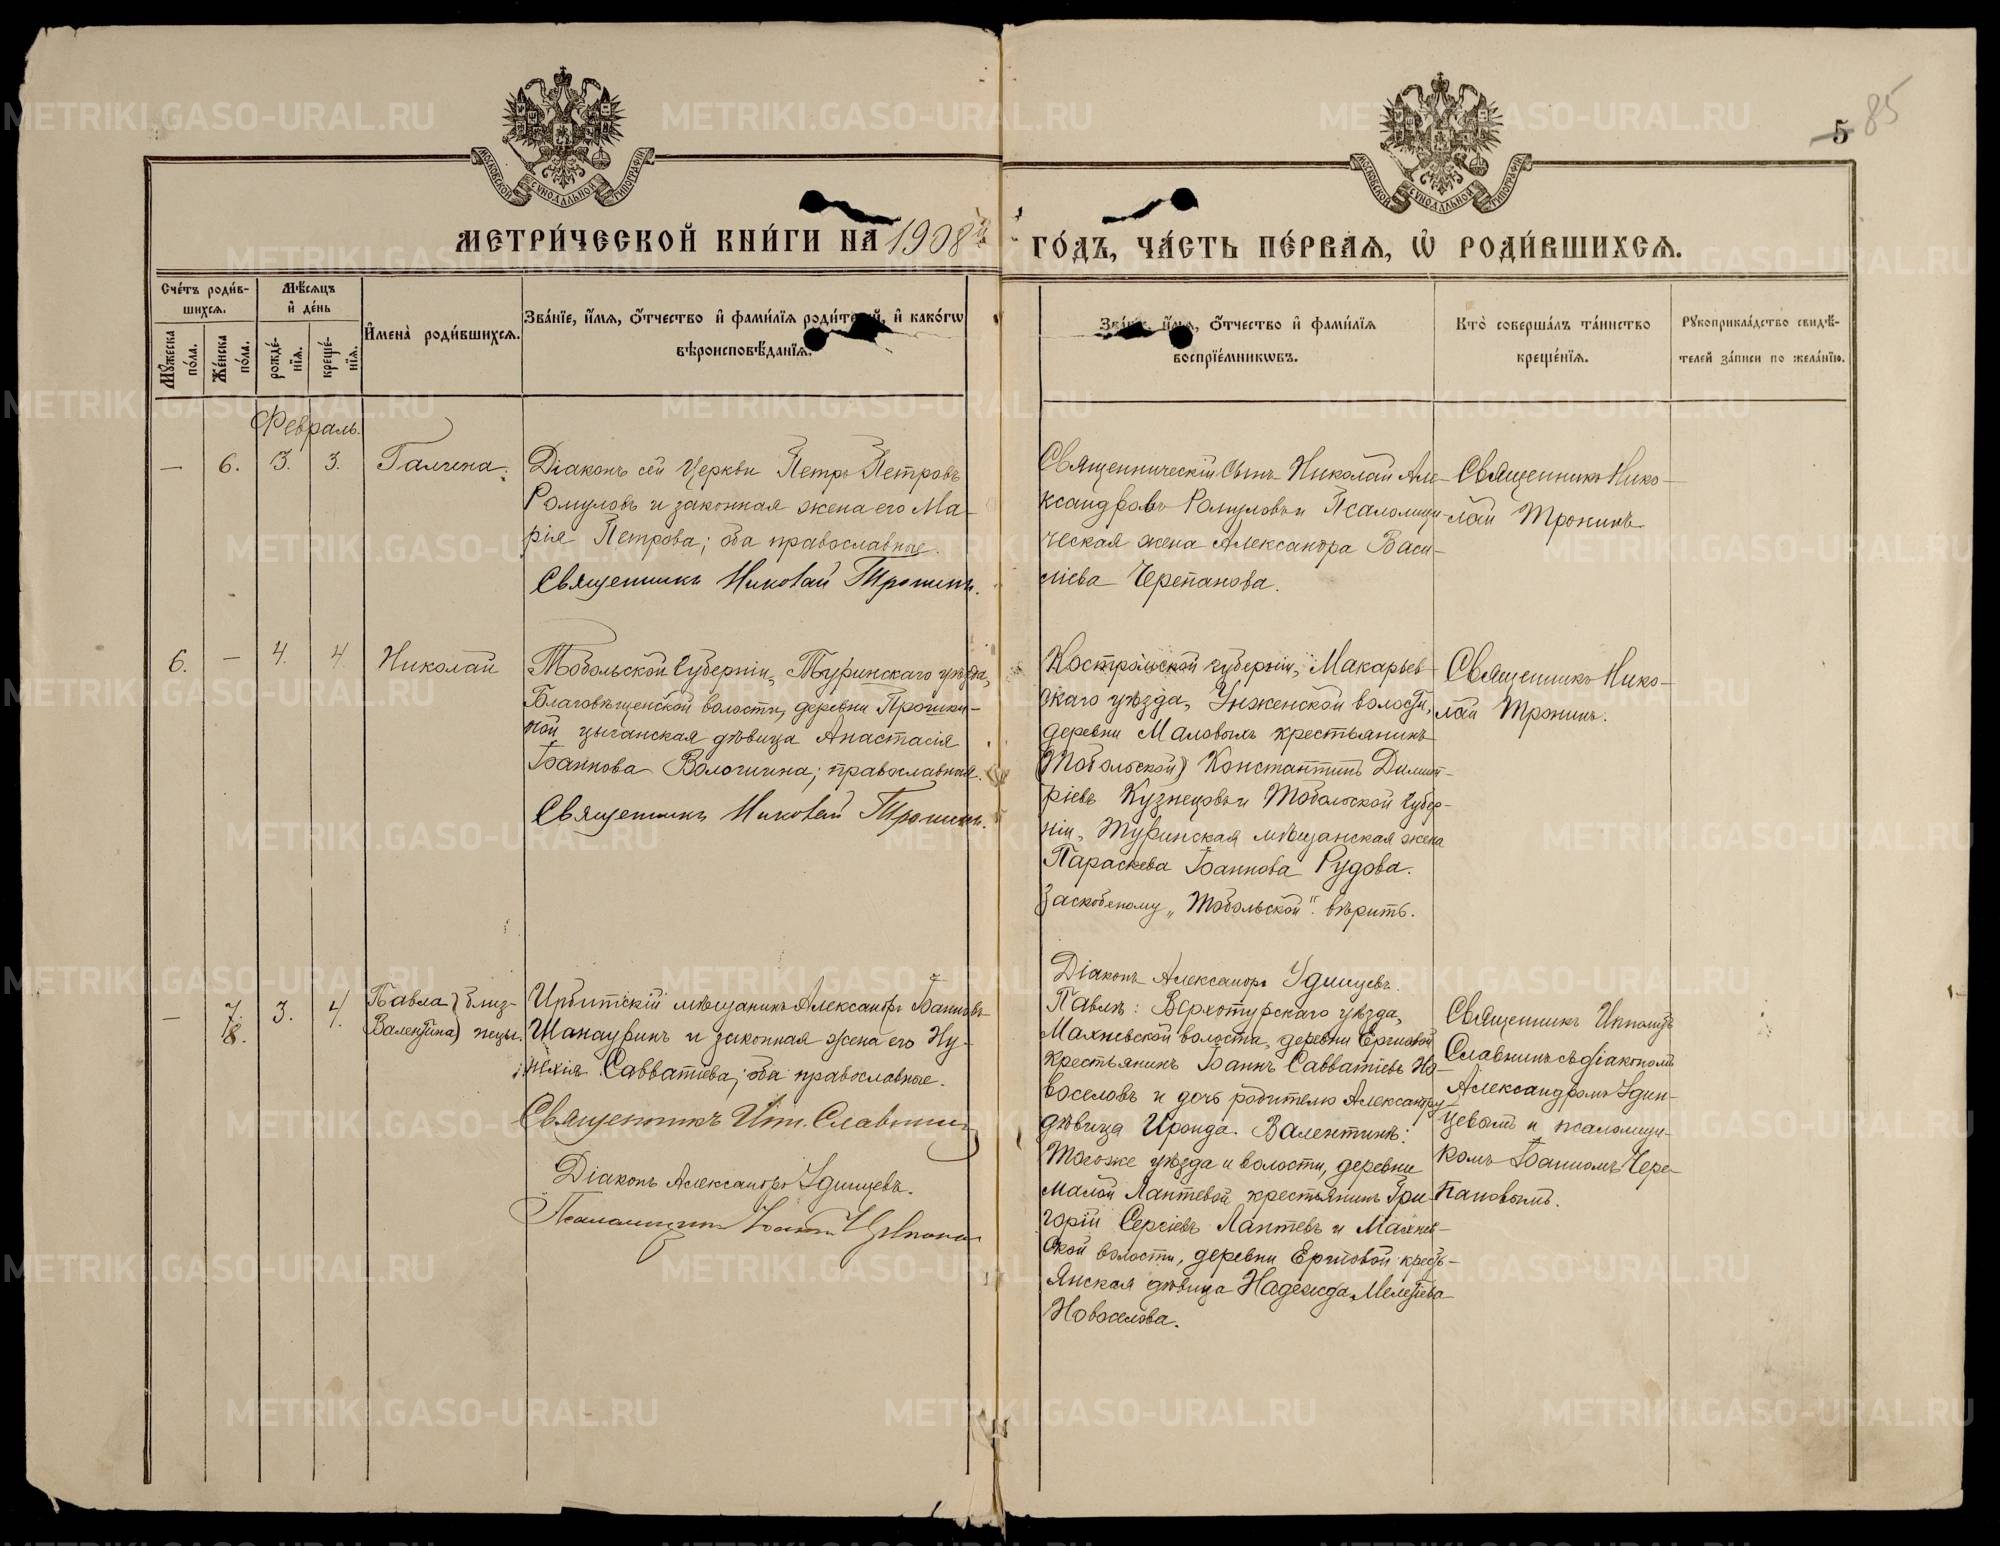 85
5
МОСКОВСКОЙ СѴНОДАЛЬНОЙ ТИПОГРАФІИ
МОСКОВСКОЙ СѴНОДАЛЬНОЙ ТИПОГРАФІИ
МЕТРИ́ЧЕСКОЙ КНИ́ГИ НА 1908й ГО́ДЪ, ЧА́СТЬ ПЕ́РВАЯ, Ѡ РОДИ́ВШИХСЯ.
Сче́тъ роди́в-
шихся.
Му́жеска по́ла.
Же́нска по́ла.
Мѣ́сяцъ
и҆ де́нь
рожде́-
нїя.
креще́-
нїя.
И҆мена̀ роди́вшихся.
Зва́нїе, и҆́мя, ѻ҆́тчество и҆ фами́лїя роди́телей, и҆ како́гѡ
вѣроисповѣ́данїя.
Зва́нїе, и҆́мя, ѻ҆́тчество и҆ фами́лїя
воспрїе́мникѡвъ.
Кто̀ соверша́лъ та́инство
креще́нїя.
Рукоприкла́дство свидѣ́-
телей за́писи по жела́нїю.
Февраль.
— 6. 3. 3. Галина.
Діаконъ сей церкви Петръ Петровъ
Ромуловъ и законная жена его Ма-
рія Петрова; оба православные.
Священникъ Николай Тронинъ.
Священническій сынъ Николай Але-
ксандровъ Ромуловъ и Псаломщи-
ческая жена Александра Васи-
ліева Черепанова.
Священникъ Нико-
лай Тронинъ
6. — 4. 4. Николай
Тобольской губерніи, Туринскаго уѣзда,
Благовѣщенской волости, деревни
ной цыганская дѣвица Анастасія
Іоаннова Вологина; православная.
Священникъ Николай Тронинъ.
Костромской губерніи, Макарьев-
скаго уѣзда, Унженской волости,
деревни Маловыхъ крестьянинъ
(Тобольской) Константинъ Димит-
ріевъ Кузнецовъ и Тобольской губер-
ніи, Туринская мѣщанская жена
Параскева Іоаннова Рудова.
Заскобеному „Тобольской“ вѣрить.
Священникъ Нико-
лай Тронинъ.
— 7. 8. 3. 4.
Павла } близ-
Валентина } нецы.
Ирбитскій мѣщанинъ Александръ Іоанновъ
Шанауринъ и законная жена его Ну-
нехія Савватіева; оба православные.
Священникъ Ип. Славнинъ
Діаконъ Александръ Удинцевъ.
Псаломщикъ
Діаконъ Александръ Удинцевъ.
Павлѣ: Верхотурскаго уѣзда,
Махневской волости, деревни
крестьянинъ Іоаннъ Савватіевъ Но-
воселовъ и дочь родителю Александру
дѣвица Ираида. Валентинѣ:
Тогоже уѣзда и волости, деревни
Малой Лаптевой крестьянинъ Гри-
горій Сергіевъ Лаптевъ и Махнев-
ской волости, деревни кресть-
янская дѣвица Надежда Мелетіева
Новоселова.
Священникъ Ипполитъ
Славнинъ съ діакономъ
Александромъ Удин-
цевымъ и псаломщи-
комъ Іоанномъ Чере-
пановымъ.
METRIKI.GASO-URAL.RU